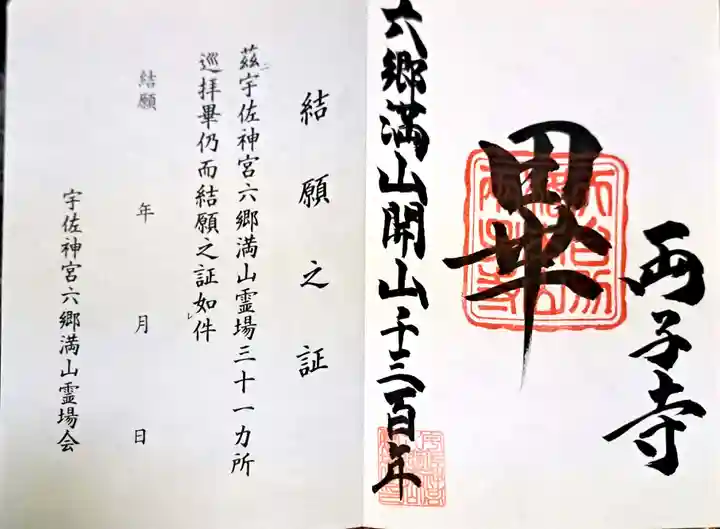 両子寺
畢
六郷満山開山千三百年
結願之証
茲ニ宇佐神宮六郷満山霊場三十一カ所
巡拝畢仍而結願之証如件
結願　年　月　日
宇佐神宮六郷満山霊場会